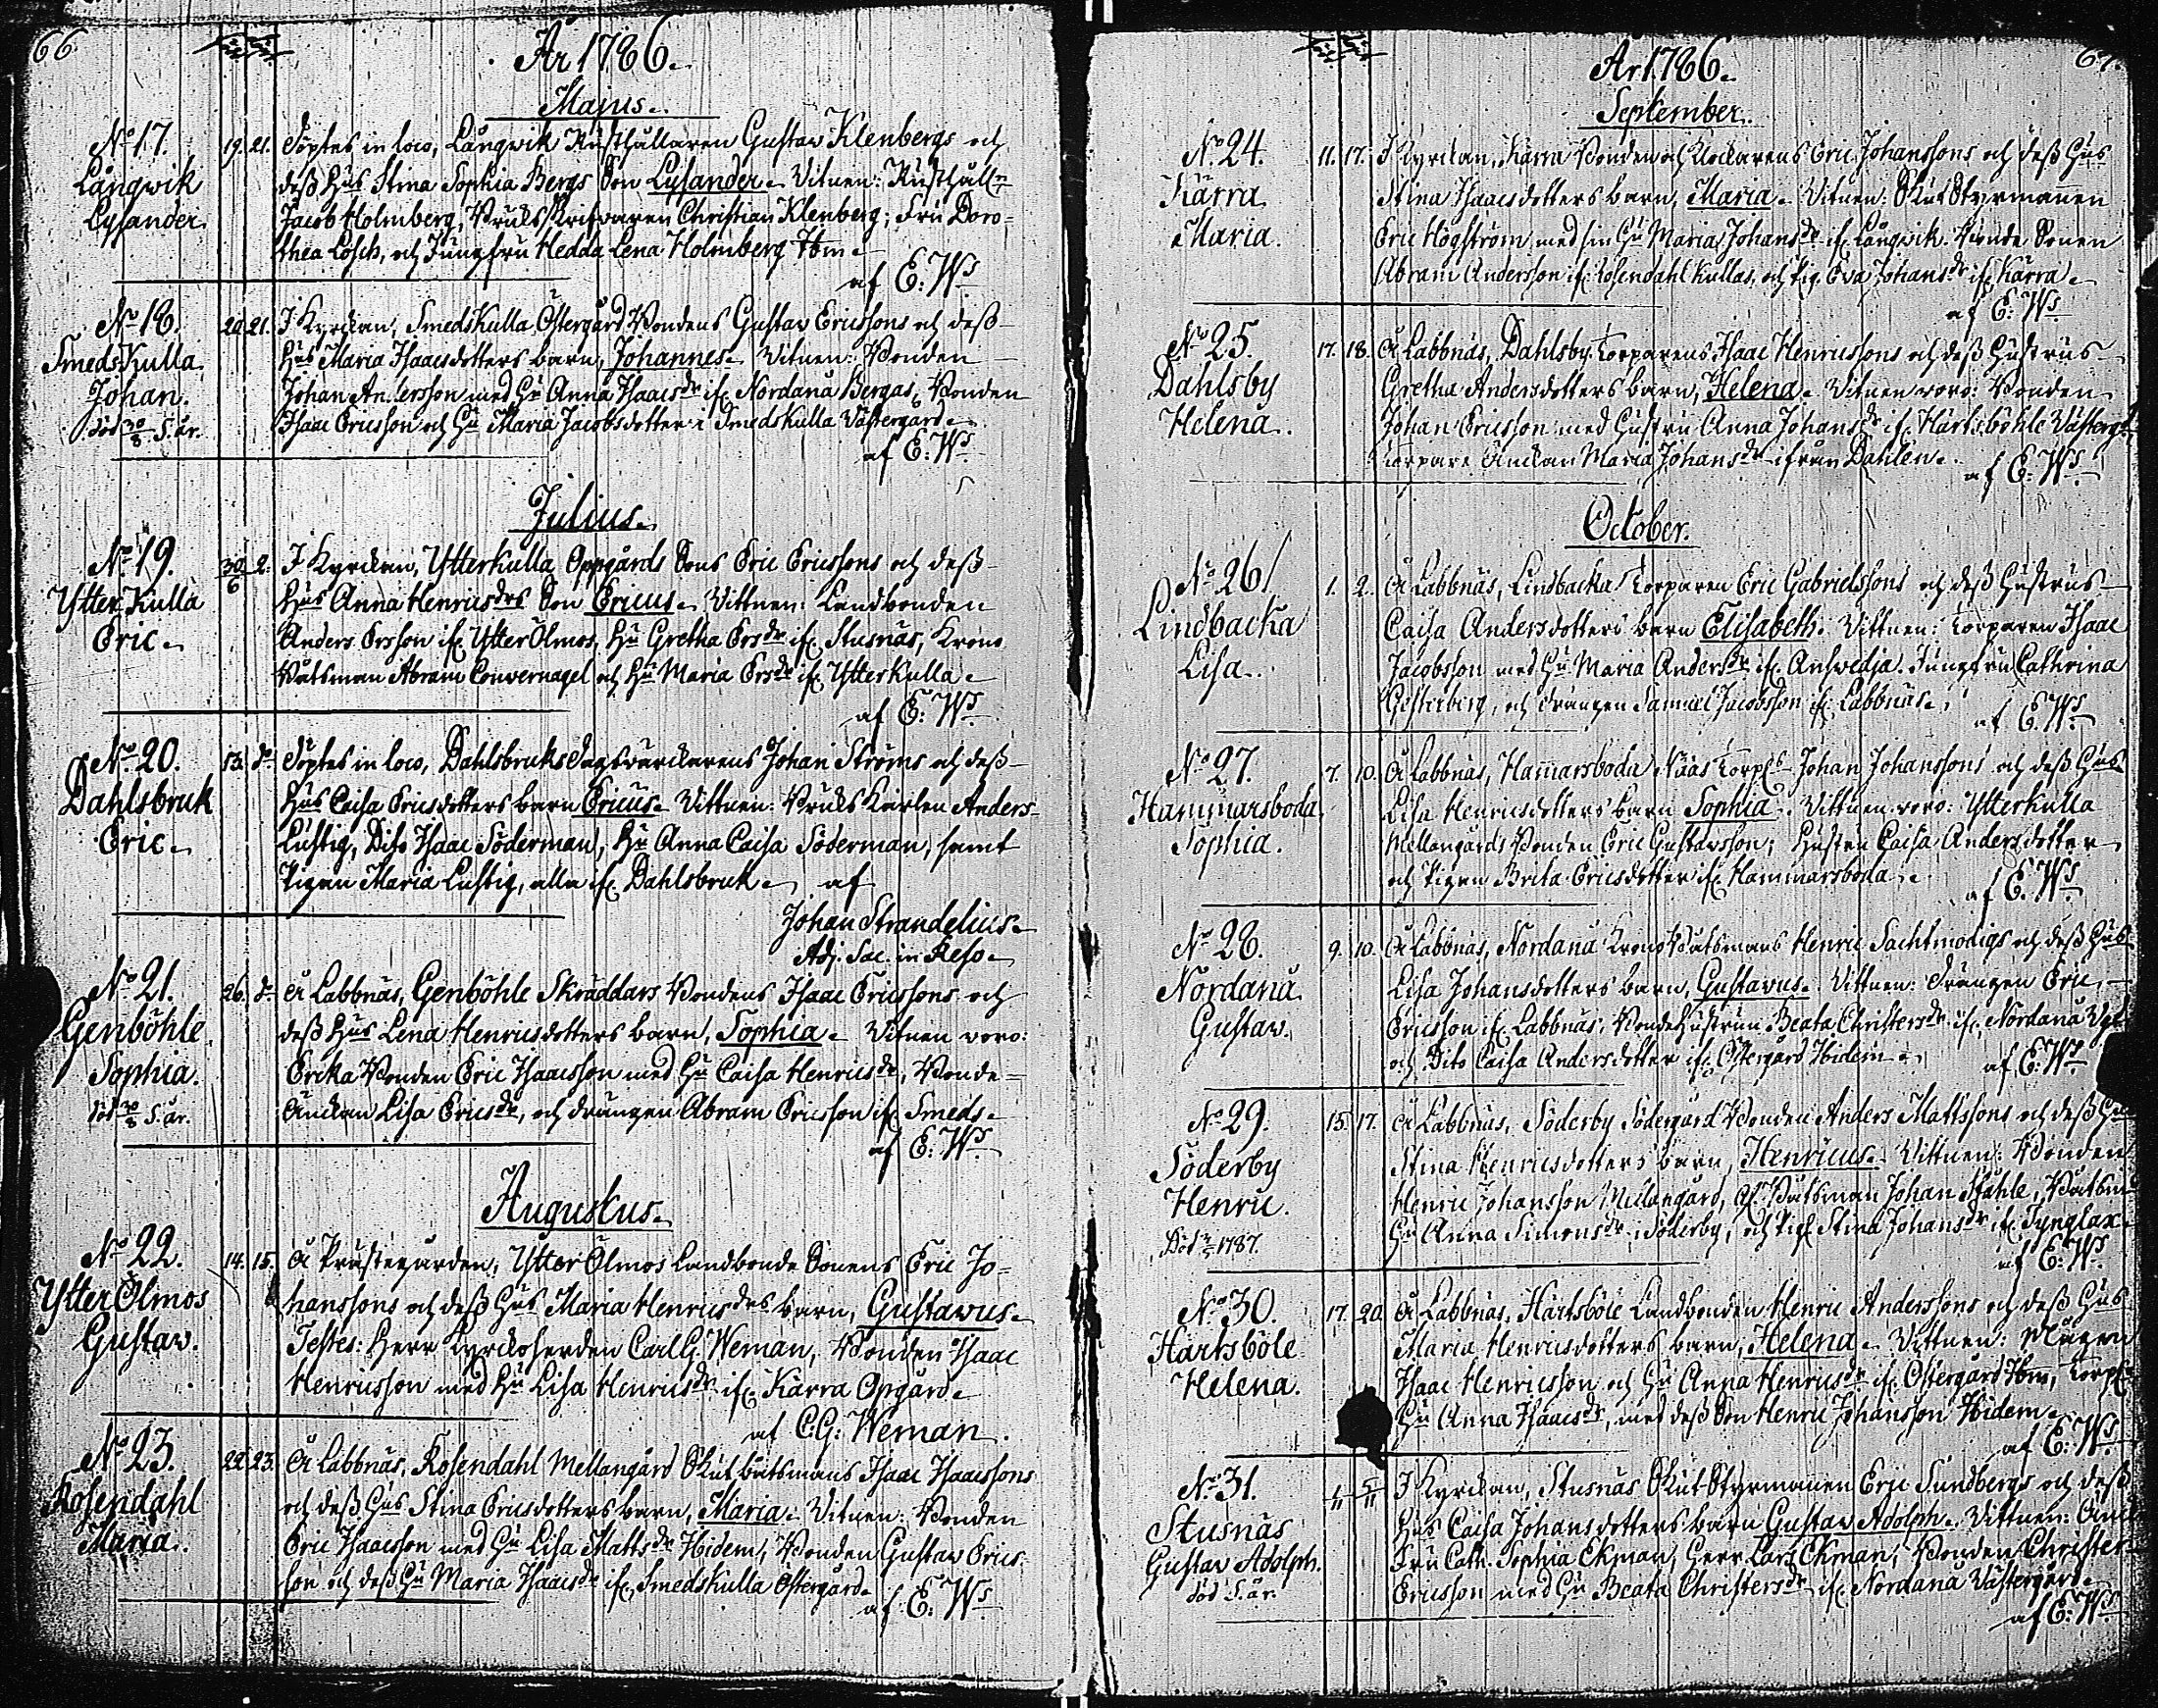 66
År 1786.
Majus.
No 17.
Långwik
Lysander
19. 21. Döptes in loco, Långwik Rusthållaren Gustav Klenbergs och
dess Hus Stina Sophia Bergs Son Lysander. Vitnen: Rusthåll
Jacob Holmberg, Bruks Skrifvaren Christian Klenberg; Fru Doro=
thea Lösch, och Jungfru Hedda Lena Holmberg Ibm.
af E: Ws
No 18.
SmedsKulla
Johan.
död 30/8 S. år.
20. 21. I Kyrckan, SmedsKulla Östergård Bondens Gustav Ericssons och dess
Hus Maria Isaacsdotters barn, Johannes. Vitnen: Bonden
Johan Andersson med Hu Anna Isaacsdr if. Nordanå Bergas, Bonden
Isaac Ericsson och Hu Maria Jacobsdotter i SmedsKulla Västergård.
af E: Ws
Julius.
No 19.
Ytter Kulla
Eric.
30/6 2. I Kyrckan, Ytterkulla Oppgårds Sons Eric Ericssons och dess
Hus Anna Henricsdrs Son Ericus. Vittnen: Landbonden
Anders Ersson if. Ytter Ölmos, Hu Gretha Ersdr if. Stusnäs, Krono
Båtsman Abram Convernagel och Hu Maria Ersdr if. Ytterkulla.
af E: Ws
No 20.
Dahlsbruk
Eric.
13. do Döptes in loco, Dahlsbruks Dagsvärckarens Johan Ströms och dess
Hus Caisa Ericsdotters barn Ericus. Vittnen: Bruks Karlen Anders
Lustig, Dito Isaac Söderman, Hu Anna Caisa Söderman, samt
Pigan Maria Lustig, alla if. Dahlsbruk. af
Johan Strandelius.
Adj. Sac. in Reso.
No 21.
Genböhle
Sophia.
död 30/8 S. år.
26. do Å Labbnäs, Genböhle Skräddars Bondens Isaac Ericssons och
dess Hus Lena Henricsdotters barn, Sophia. Vitnen voro:
Ercka Bonden Eric Isaacsson med Hu Caisa Henricsdr, Bonde
Änckan Lisa Ericsdr, och drängen Abram Ericsson if. Smeds.
af E: Ws
Augustus.
No 22.
Ytter Ölmos
Gustav.
14. 15. Å Prästegården, Ytter Ölmos Landbonde Sonens Eric Jo=
hanssons och dess Hus Maria Henricsdrs barn, Gustavus.
Testes: Herr Kyrckoherden Carl G. Weman, Bonden Isaac
Henricsson med Hu Lisa Henricsdr if. Kärra Opgård.
af C:G: Weman.
No 23.
Rosendahl
Maria.
22. 23. Å Labbnäs, Rosendahl Mellangård Skut båtsmans Isaac Isaacssons
och dess Hus Stina Ericsdotters barn, Maria. Vitnen: Bonden
Eric Isaacsson med Hu Lisa Mattsdr Ibidem, Bonden Gustav Erics
son och dess Hu Maria Isaacsdr if. SmedsKulla Östergård.
af E: Ws
67.
År 1786.
September.
No 24.
Kärra
Maria.
11. 17. I Kyrckan, Kärra Bonden och Klockarens Eric Johanssons och dess Hus
Stina Isaacsdotters barn, Maria. Vitnen: Skut Styrmannen
Eric Högström med sin Hu Maria Johansdr if. Långwik. Bonde Sonen
Abram Andersson if. Rosendahl Kullas, och Pig. Eva Johansdr if. Kärra.
af E: Ws
No 25.
Dahlsby
Helena.
17. 18. Å Labbnäs, Dahlsby Torparens Isaac Henricssons och dess Hustrus
Gretha Andersdotters barn, Helena. Vitnen voro: Bonden
Johan Ericsson med Hustru Anna Johansdr if. Härtsböhle Västergd
Torpare Änckan Maria Johansdr ifrån Dahlen.
af E: Ws
October.
No 26
Lindbacka
Lisa.
1. 2. Å Labbnäs, Lindbacka Torparen Eric Gabrielssons och dess Hustrus
Caisa Andersdotters barn Elisabeth. Vittnen: Torparen Isaac
Jacobsson med Hu Maria Andersdr if. Ansvedja. Jungfru Cathrina
Gesterberg, och drängen Samuel Jacobsson if. Labbnäs.
af E. Ws
No 27.
Hammarsboda
Sophia.
7. 10. Å Labbnäs, Hammarsboda Näs Torps Johan Johanssons och dess Hus
Lisa Henricsdotters barn Sophia. Vittnen voro: Ytterkulla
Mellangårds Bonden Eric Gustavsson; Hustru Caisa Andersdotter
och Pigan Brita Ericsdotter if. Hammarsboda.
af E. Ws
No 28.
Nordanå
Gustav.
9. 10. Å Labbnäs, Nordanå Krono Båtsmans Henric Sachtmodigs och dess Hus
Lisa Johansdotters barn, Gustavus. Vittnen: Drängen Eric
Ericsson if. Labbnäs, Bonde Hustrun Beata Christersdr if. Nordanå Vg
och Dito Caisa Andersdotter if. Östergård Ibidem.
af E: Ws
No 29.
Söderby
Henric.
Död 1787.
15. 17. Å Labbnäs, Söderby Södergård Bonden Anders Mattssons och dess Hus
Stina Henricsdotters barn, Henricus. Vittnen: Bonden
Henric Johansson Mellangård, Båtsman Johan Ståhle, Båtsm
Hu Anna Simonsdr i Söderby, och Pig. Stina Johansdr if. Tynglax.
af E: Ws
No 30.
Härtsböle
Helena.
17. 20. Å Labbnäs, Härtsböle Landbonden Henric Anderssons och dess Hus
Maria Henricsdotters barn, Helena. Vittnen: Mågen
Isaac Henricsson och Hu Anna Henricsdr if. Östergård Ibm, Torp
Hu Anna Isaacsdr, med dess Son Henric Johansson Ibidem.
af E: Ws
No 31.
Stusnäs
Gustav Adolph.
död S. år.
1/11 5/11 I Kyrckan, Stusnäs Skut Styrmannen Eric Sundbergs och dess
Hus Caisa Johansdotters barn Gustav Adolph. Vittnen:
Fru Cath. Sophia Ekman, Herr Lars Ekman, Bonden Christer
Ericsson med Hu Beata Christersdr if. Nordanå Västergård.
af E: Ws